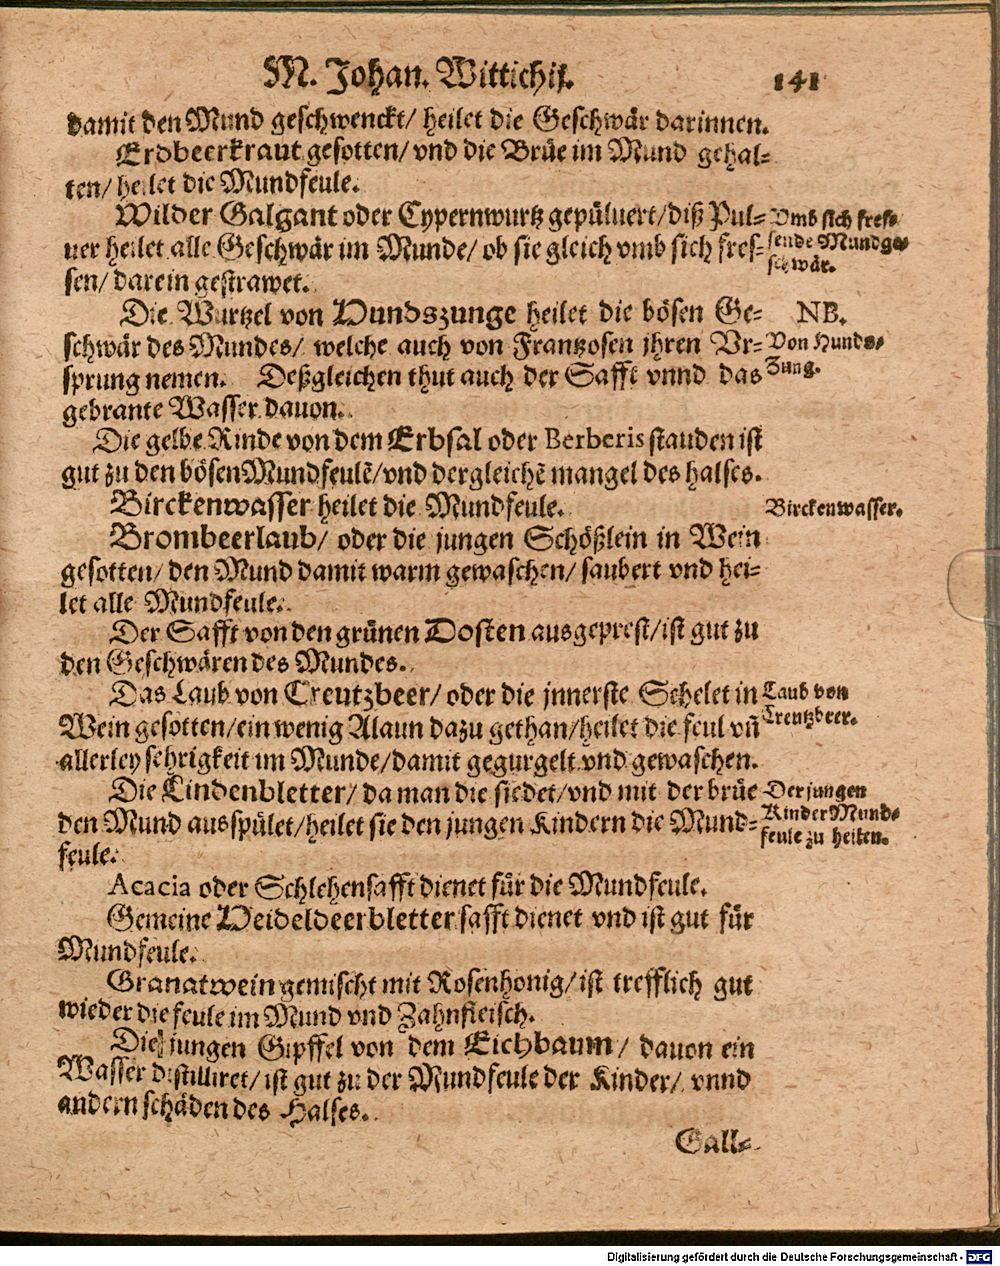 M. Johan. Wittichij. 141
damit den Mund geschwenckt/ heilet die Geschwär darinnen.
Erdbeerkraut gesotten/ vnd die Brüe im Mund gehal⸗
ten/ heilet die Mundfeule.
Wilder Galgant oder Cypernwurtz gepüluert/ diß Pul⸗
uer heilet alle Geschwär im Munde/ ob sie gleich vmb sich fres⸗
sen/ darein gestrawet.
Vmb sich fres⸗
sende Mundge⸗
schwär.
Die Wurtzel von Hundszunge heilet die bösen Ge⸗
schwär des Mundes/ welche auch von Frantzosen jhren Vr⸗
sprung nemen. Deßgleichen thut auch der Safft vnnd das
gebrante Wasser dauon.
NB.
Von Hunds⸗
Zung.
Die gelbe Rinde von dem Erbsal oder Berberis stauden ist
gut zu den bösen Mundfeulẽ/ vnd dergleichẽ mangel des halses.
Birckenwasser heilet die Mundfeule.
Birckenwasser.
Brombeerlaub/ oder die jungen Schößlein in Wein
gesotten/ den Mund damit warm gewaschen/ saubert vnd hei⸗
let alle Mundfeule.
Der Safft von den grünen Dosten ausgeprest/ ist gut zu
den Geschwären des Mundes.
Das Laub von Creutzbeer/ oder die jnnerste Schelet in
Wein gesotten/ ein wenig Alaun dazu gethan/ heilet die feul vñ
allerley sehrigkeit im Munde/ damit gegurgelt vnd gewaschen.
Laub von
Creutzbeer.
Die Lindenbletter/ da man die siedet/ vnd mit der brüe
den Mund ausspület/ heilet sie den jungen Kindern die Mund⸗
feule.
Der jungen
Kinder Mund⸗
feule zu heilen.
Acacia oder Schlehensafft dienet für die Mundfeule.
Gemeine Heideldeerbletter safft dienet vnd ist gut für
Mundfeule.
Granatwein gemischt mit Rosenhonig/ ist trefflich gut
wieder die feule im Mund vnd Zahnfleisch.
Die jungen Gipffel von dem Eichbaum/ dauon ein
Wasser distilliret/ ist gut zu der Mundfeule der Kinder/ vnnd
andern schäden des Halses.
Gall⸗
Digitalisierung gefördert durch die Deutsche Forschungsgemeinschaft - DFG